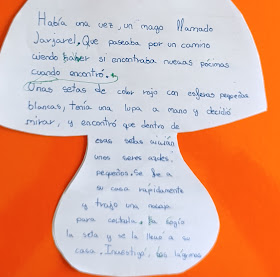 Había una vez, un mago llamado
Jarjarel. Que paseaba por un camino
viendo haber si encontraba nuevas pócimas
cuando encontró.
Unas setas de color rojo con esferas pequeñas
blancas, tenía una lupa a mano y decidió
mirar, y encontró que dentro de
esas setas vivían
unos seres azules,
pequeños. Se fue a
su casa rápidamente
y trajo una navaja
para cortarla. Ya cogió
la seta y se la llevó a su
casa. Investigó, las lágrimas